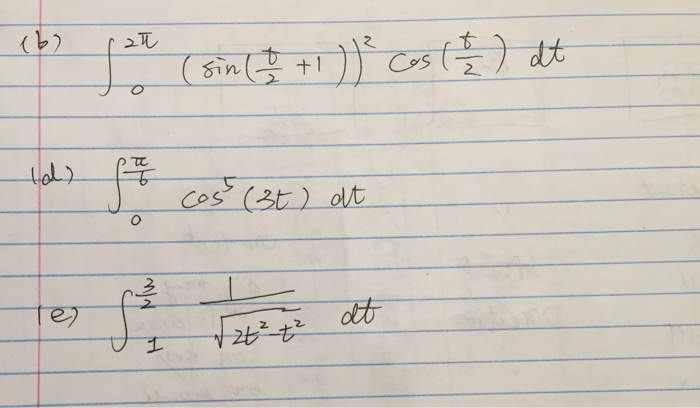 (b) ∫₀^{2π} (sin(t/2 + 1))² cos(t/2) dt
(d) ∫₀^{π/6} cos⁵(3t) dt
(e) ∫₁^{3/2} 1/√(2t² - t²) dt